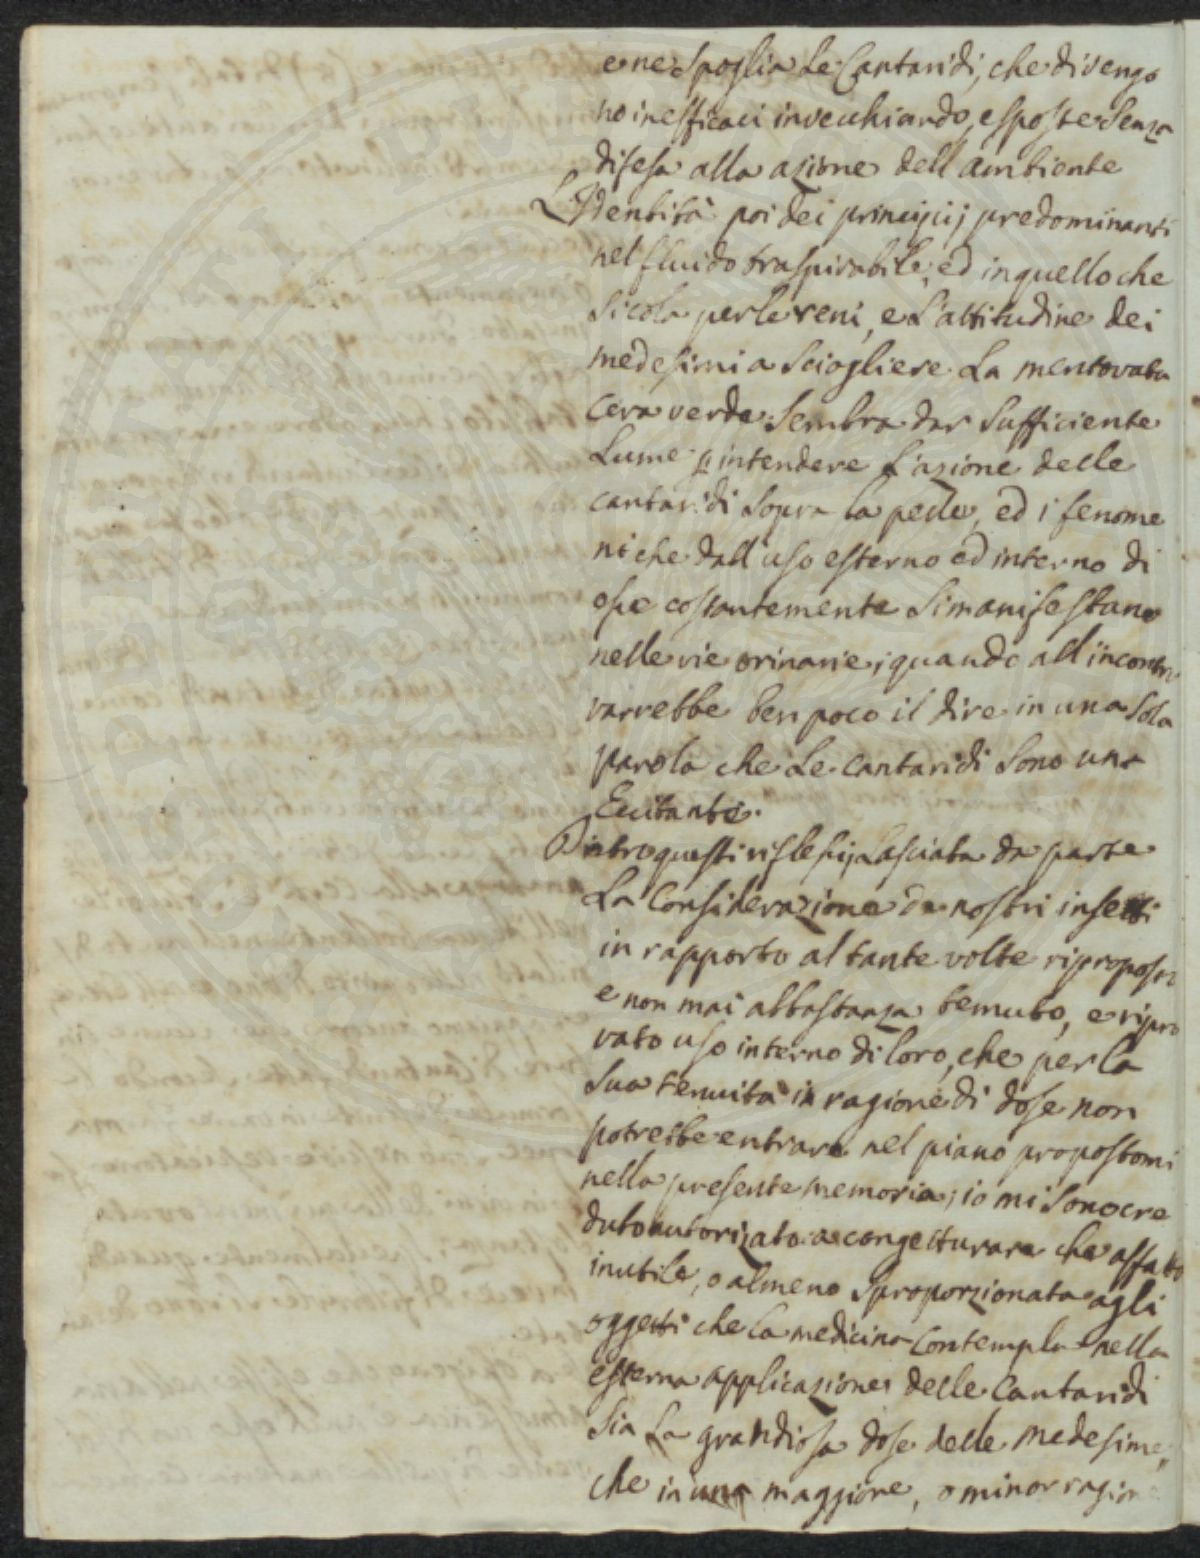 e ne spoglia le Cantaridi, che divengo
no inefficaci invecchiando, esposte senza
difesa alla azione dell'ambiente
L'Identità poi dei principij predominanti
nel fluido traspirabile, ed in quello che
si cola per le reni, e l'attitudine dei
medesimi a sciogliere la mentovata
cera verde sembra dar sufficiente
lume p intendere l'azione delle
cantaridi sopra la pelle, ed i fenome
ni che dall'uso esterno ed interno di
esse costantemente si manifestano
nelle vie orinarie; quando all'incontro
varrebbe ben poco il dire in una sola
parola che le cantaridi sono uno
Eccitante.
Dietro questi riflessij lasciata da parte
la Considerazione de nostri insetti
in rapporto al tante volte riproposto
e non mai abbastanza temuto, e ripro
vato uso interno di loro, che per la
sua tenuità in ragione di dose non
potrebbe entrare nel piano propostomi
nella presente memoria; io mi sono cre
duto autorizato a congetturare che affatto
inutile, o almeno sproporzionata agli
oggetti che la medicina contempla nella
esterna applicazione delle Cantaridi
sia la grandiosa dose delle medesime,
che in una maggiore, o minor ragion